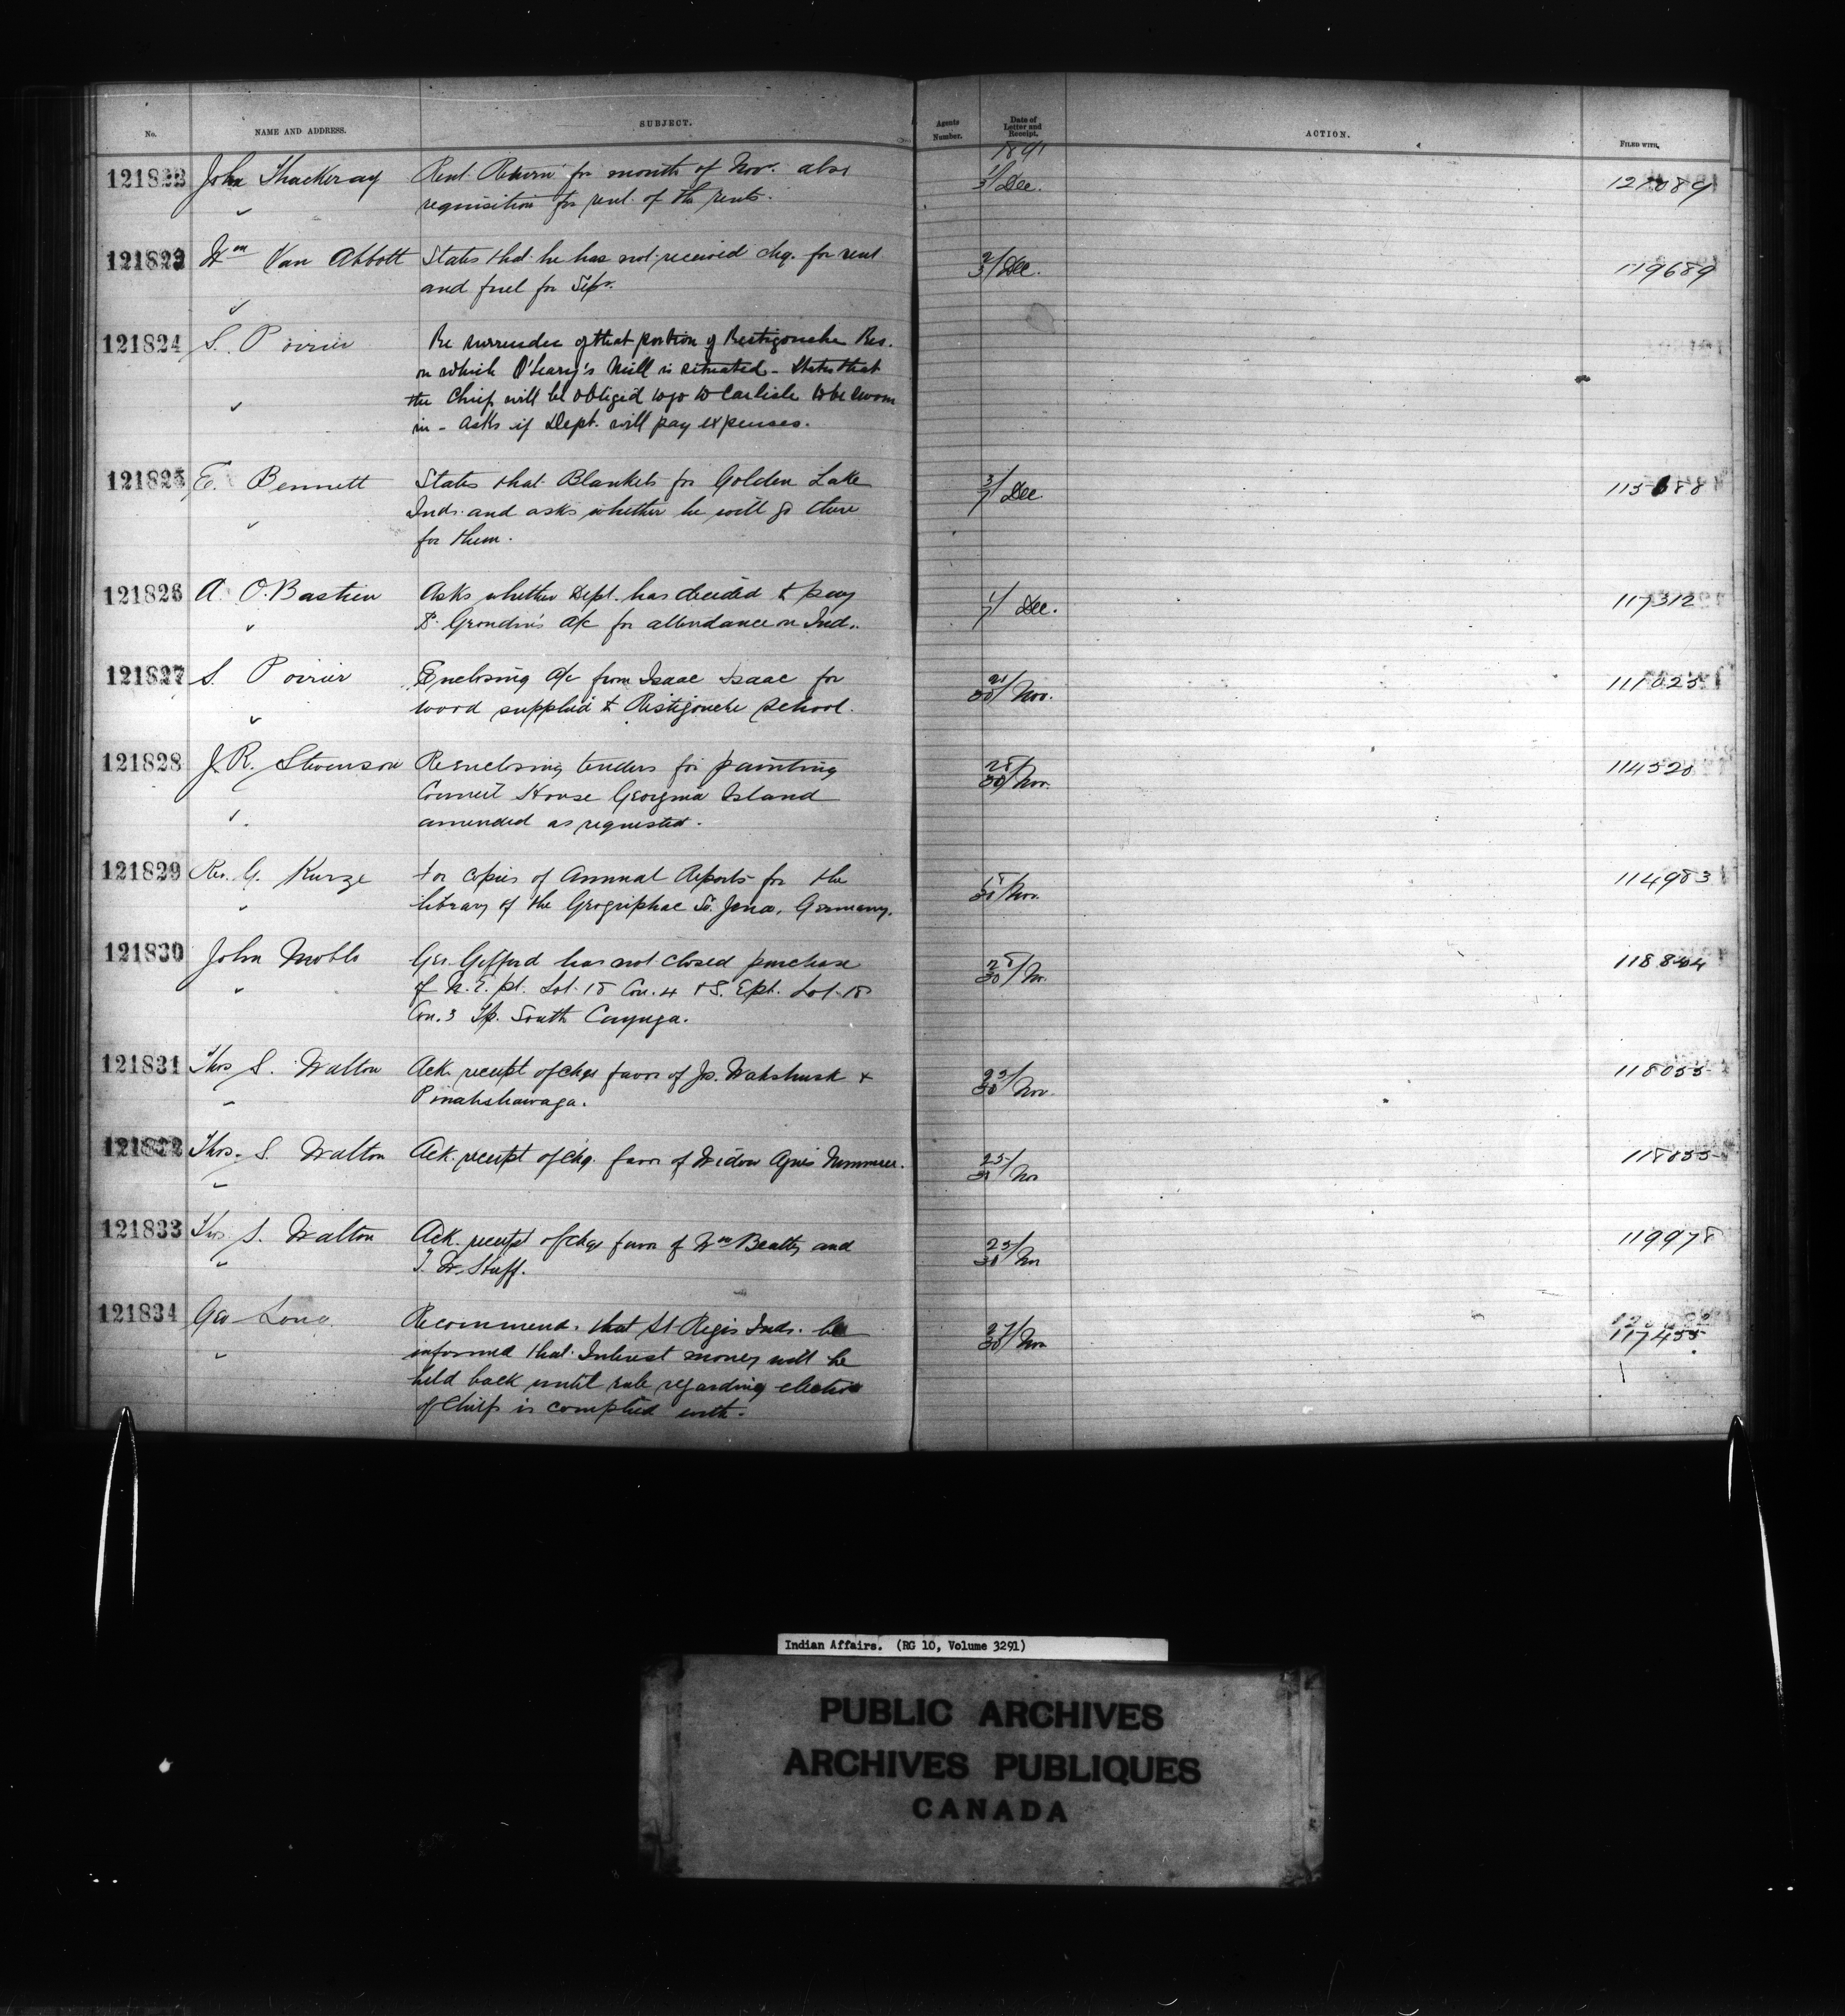 No. NAME AND ADDRESS. SUBJECT. Agents Number. Date of Letter and Receipt. ACTION. FILED WITH.
1891
121822 John Thackeray Rent Return for month of Nov. also 1/3 Dec. 121089
requisition for rent of the rents.
121823 Wm Van Abbott States that he has not received chq. for rent 2/3 Dec. 119689
and fuel for Sepr.
121824 S. Poirier Re surrender of that portion of Restigouche Res.
on which O'Leary's Mill is situated - States that
the Chief will be obliged to go to Carlisle to be sworn
in - asks if Dept. will pay expenses.
121825 E. Bennett States that Blankets for Golden Lake 3/7 Dec
Inds. and asks whether he will go there
for them.
121826 A. O. Bastien Asks whether Dept. has decided to pay 1/7 Dec. 117312
Grondin's a/c for attendance on Ind..
121827 S. Poirier Enclosing a/c from Isaac Isaac for /30 Nov. 111025
wood supplied to Ristigouche School.
121828 J. R. Stevenson Reenclosing tenders for painting 28/30 Nov. 114528
Council House Georgina Island
amended as requested.
121829 Rev. G. Kurze For copies of Annual Reports for the Nov. 114983
library of the Geogriphac So. Jena, Germany.
121830 John Geo. Gifford has not closed purchase 28/30 No. 118844
of N. E. pt. Lot 18 Con. 4 + S. E pt. Lot 18
Con. 3 Tp. South Cayuga.
121831 Thos S. Walton Ack. receipt of chqs favor of Js. Wahshusk + /30 Nov. 118055
Pinahshawaga.
121832 Thos. S. Walton Ack. receipt of chq. favor of Widow Agnes 25/30 Nov 118055
121833 Thos S. Walton Ack. receipt of chqs favor of Wm Beatty and 25/30 Nov 119978
T. W. Stuff.
121834 Geo Long Recommends that St Regis Inds. be 27/30 Nov
informed that Interest money will be 117455
held back until rule regarding election
of Chiefs is complied with.
Indian Affairs. (RG 10, Volume 3291)
PUBLIC ARCHIVES
ARCHIVES PUBLIQUES
CANADA